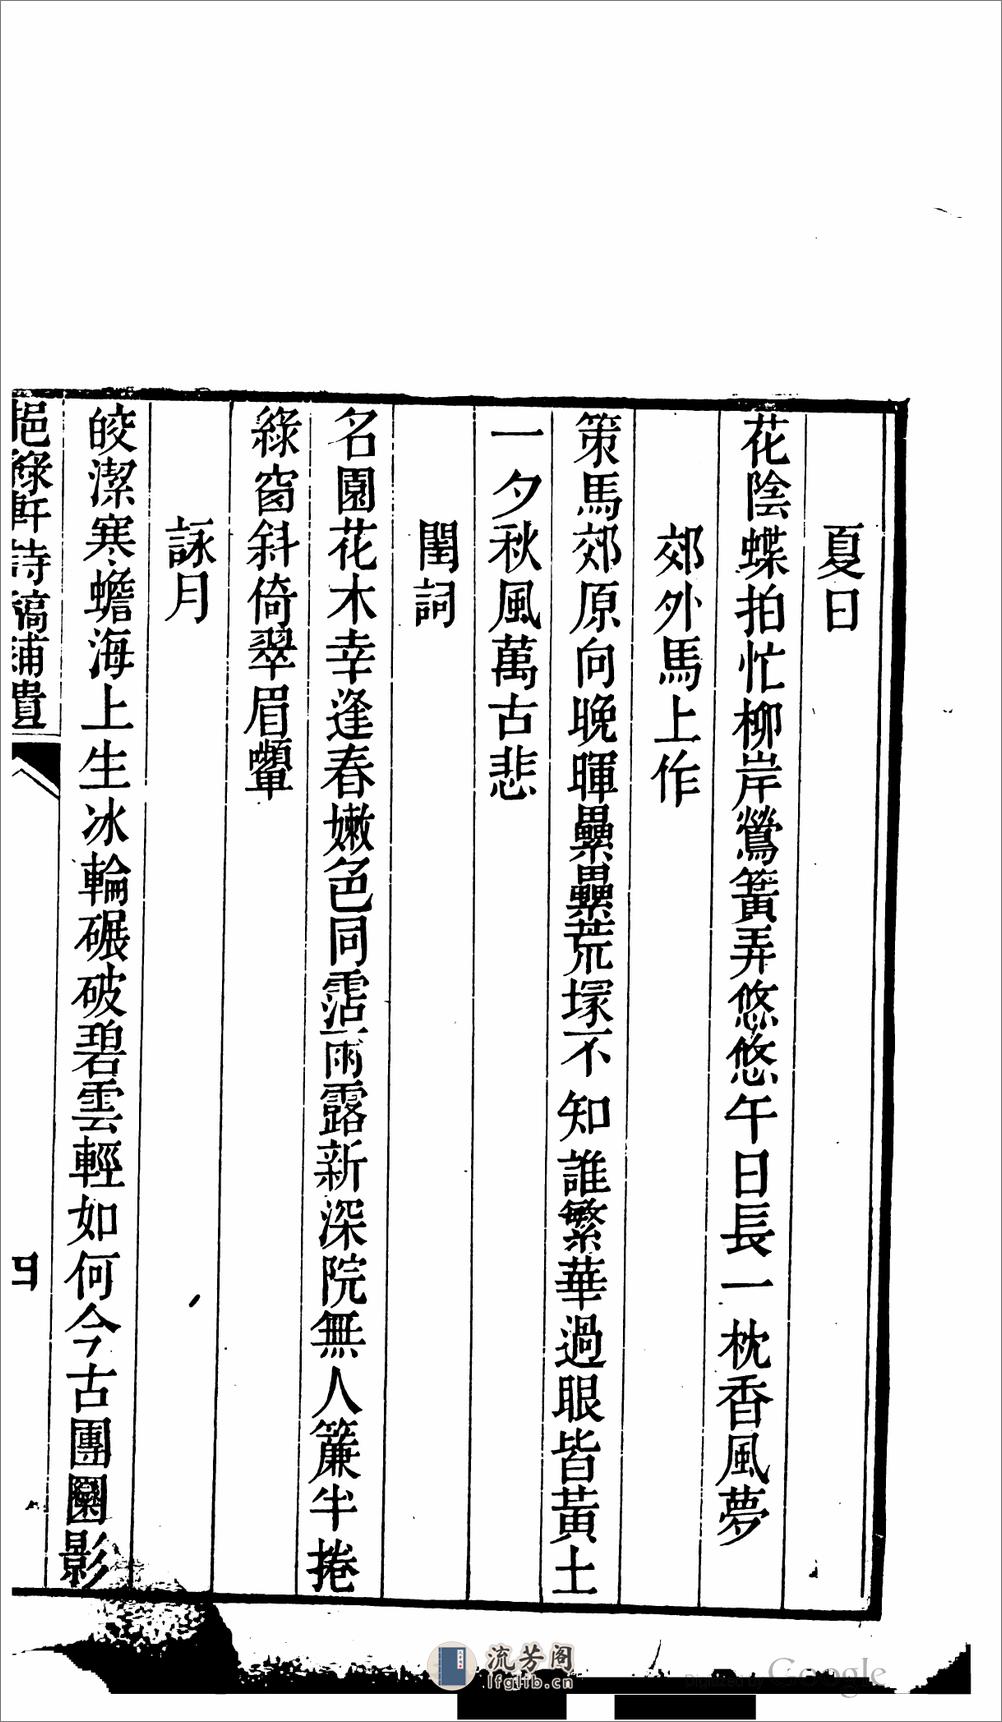 夏日
花陰蝶拍忙柳岸鶯簧弄悠悠午日長一枕香風夢
郊外馬上作
策馬郊原向晚暉纍纍荒塚不知誰繁華過眼皆黃土
一夕秋風萬古悲
閨詞
名園花木幸逢春嫩色同霑雨露新深院無人簾半捲
綠窗斜倚翠眉顰
詠月
皎潔寒蟾海上生冰輪碾破碧雲輕如何今古團圞影
挹綠軒詩稿補遺
四
流芳阁
lfglib.cn
Digitized by Google